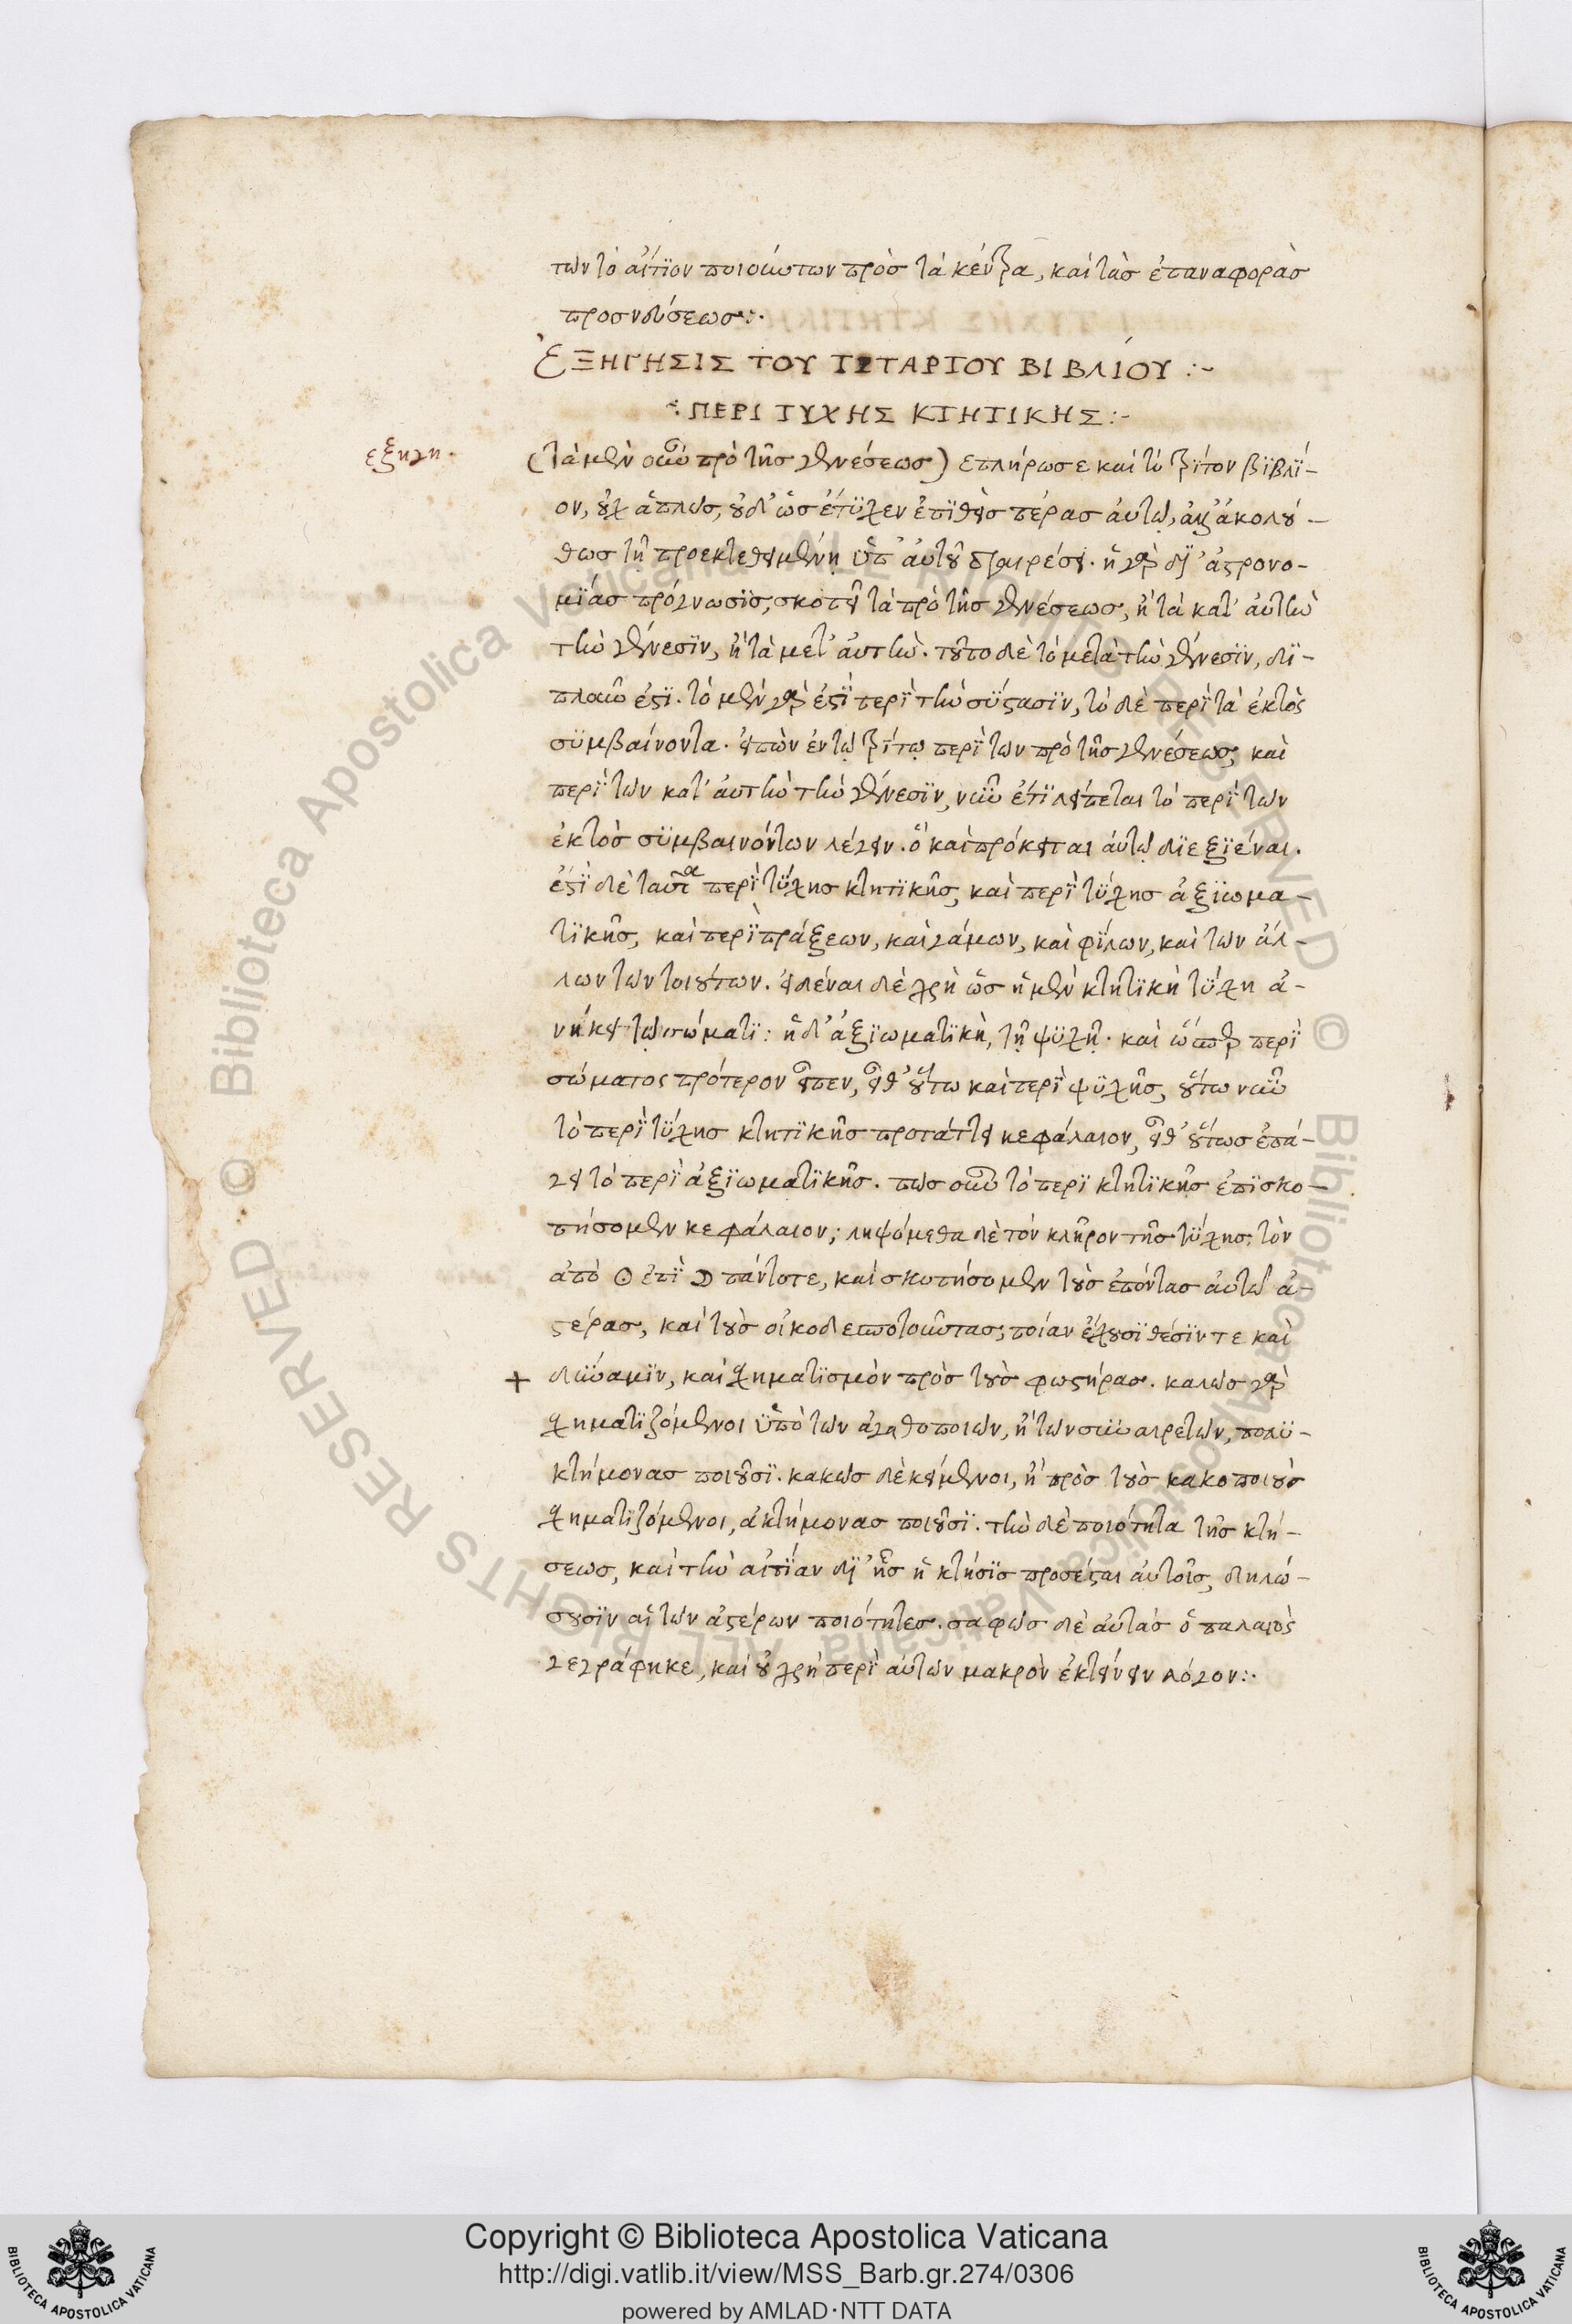 των τὸ αἴτιον ποιούντων πρὸς τὰ κέντρα, καὶ τὰς ἐπαναφορὰς
προσνεύσεως:·
ἘΞΗΓΗΣΙΣ ΤΟΥ ΤΕΤΑΡΤΟΥ ΒΙΒΛΊΟΥ :~
ΠΕΡΙ ΤΥΧΗΣ ΚΤΗΤΙΚΗΣ:~
εξηγη.
(τὰ μὲν οὖν πρὸ τῆς γενέσεως) επλήρωσε καὶ τὸ τρίτον βιβλί-
ον, οὐχ ἁπλῶς, οὐδ' ὡς ἔτυχεν ἐπιθεὶς πέρας αὐτῷ, ἀλλ' ἀκολού-
θως τῇ προεκτεθειμένῃ ὑπ' αὐτοῦ διαιρέσει. ἡ γὰρ δι' ἀστρονο-
μίας πρόγνωσις, σκοπεῖ τὰ πρὸ τῆς γενέσεως, ἢ τὰ κατ' αὐτὴν
τὴν γένεσιν, ἢ τὰ μετ' αὐτήν. τοῦτο δὲ τὸ μετὰ τὴν γένεσιν, δι-
πλοῦν ἐστι. τὸ μὲν γάρ ἐστι περὶ τὴν σύστασιν, τὸ δὲ περὶ τὰ ἐκτὸς
συμβαίνοντα. εἰπὼν ἐν τῷ τρίτῳ περὶ τῶν πρὸ τῆς γενέσεως, καὶ
περὶ τῶν κατ' αὐτὴν τὴν γένεσιν, νῦν ἔτι λείπεται τὸ περὶ τῶν
ἐκτὸς συμβαινόντων λέγειν. ὃ καὶ πρόκειται αὐτῷ διεξιέναι.
ἔστι δὲ ταῦτα περὶ τύχης κτητικῆς, καὶ περὶ τύχης ἀξιωμα-
τικῆς, καὶ περὶ πράξεων, καὶ γάμων, καὶ φίλων, καὶ τῶν ἄλ-
λων τῶν τοιούτων. εἰδέναι δὲ χρὴ ὡς ἡ μὲν κτητικὴ τύχη ἀ-
νήκει τῷ σώματι: ἡ δ' ἀξιωματικὴ, τῇ ψυχῇ. καὶ ὥσπερ περὶ
σώματος πρότερον εἶπεν, εἶθ' οὕτω καὶ περὶ ψυχῆς, οὕτω νῦν
τὸ περὶ τύχης κτητικῆς προτάττει κεφάλαιον, εἶθ' οὕτως ἐπά-
γει τὸ περὶ ἀξιωματικῆς. πῶς οὖν τὸ περὶ κτητικῆς ἐπισκο-
πήσομεν κεφάλαιον; ληψόμεθα δὲ τὸν κλῆρον τῆς τύχης, τὸν
ἀπὸ ☉ ἐπὶ ☽ πάντοτε, καὶ σκοπήσομεν τοὺς ἐπόντας αὐτῷ ἀ-
στέρας, καὶ τοὺς οἰκοδεσποτοῦντας, ποίαν ἔχουσι θέσιν τε καὶ
+ δύναμιν, καὶ σχηματισμὸν πρὸς τοὺς φωστήρας. καλῶς γὰρ
σχηματιζόμενοι ὑπὸ τῶν ἀγαθοποιῶν, ἢ τῶν συναιρετῶν, πολυ-
κτήμονας ποιοῦσι. κακῶς δὲ κείμενοι, ἢ πρὸς τοὺς κακοποιοὺς
σχηματιζόμενοι, ἀκτήμονας ποιοῦσι. τὴν δὲ ποιότητα τῆς κτή-
σεως, καὶ τὴν αἰτίαν δι' ἧς ἡ κτήσις προσέσται αὐτοῖς, δηλώ-
σουσιν αἱ τῶν ἀστέρων ποιότητες. σαφῶς δὲ αὐτὰς ὁ παλαιὸς
γεγράφηκε, καὶ οὐ χρὴ περὶ αὐτῶν μακρὸν ἐκτείνειν λόγον:·
Copyright © Biblioteca Apostolica Vaticana
http://digi.vatlib.it/view/MSS_Barb.gr.274/0306
powered by AMLAD·NTT DATA
BIBLIOTECA APOSTOLICA VATICANA
BIBLIOTECA APOSTOLICA VATICANA
© Biblioteca Apostolica Vaticana ALL RIGHTS RESERVED
© Biblioteca Apostolica Vaticana ALL RIGHTS RESERVED